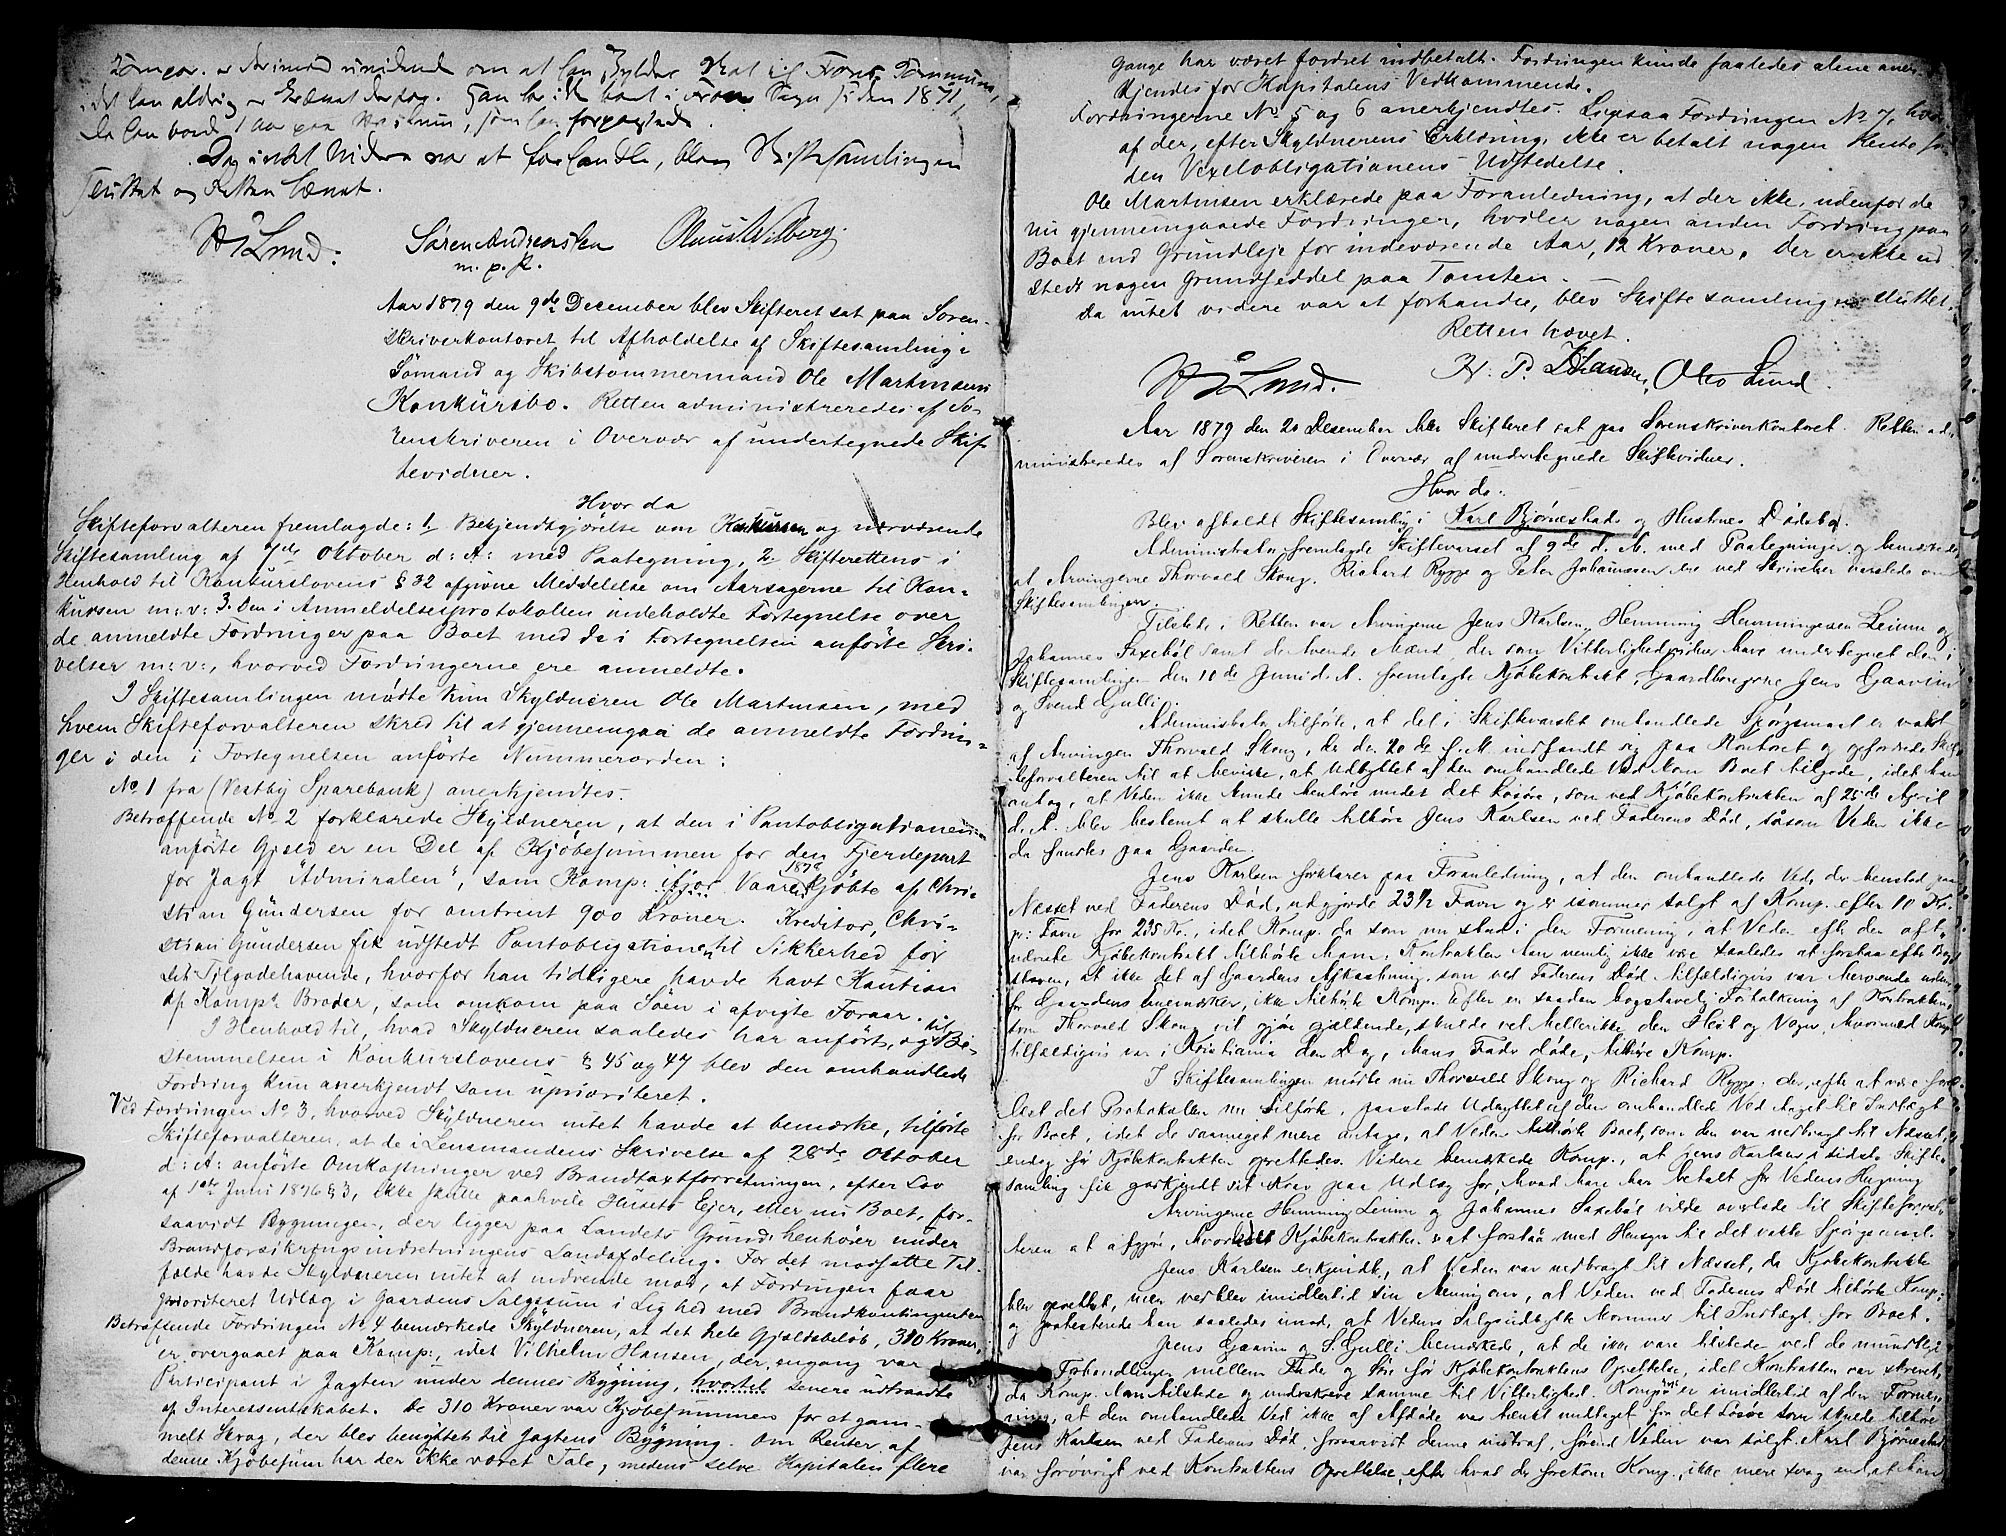 Komp. er derimod vidende om at han skylder Skat til Fron Commune,
i det han aldrig er krævet derfor. Han har ikke boet i Fron Sogn siden 1871,
da han boede 1 Aar paa som han forpagtede.
Da intet videre var at forhandle, blev Skiftesamlingen
sluttet og Retten hævet.
Lund. Søren Andersen Olaus Wilberg.
m. p. P.
Aar 1879 den 9de December blev Skifteret sat paa Soren-
skriverkontoret til Afholdelse af Skiftesamling i
Sømand og Skibstømmermand Ole Martinsens
Konkursbo. Retten administreredes af So-
renskriveren i Overvær af undertegnede Skif-
tevidner.
Hvor da
Skifteforvalteren fremlagde: 1, Bekjendtgjørelse om Konkursen og nærværende
Skiftesamling af 7de Oktober d: A: med Paategning, 2, Skifterettens i
Henhold til Konkurslovens § 32 afgivne Meddelelse om Aarsagerne til Kon-
kursen m: v: 3. Den i Anmeldelsesprotokollen indeholdte Fortegnelse over
de anmeldte Fordringer paa Boet med de i Fortegnelsen anførte Skri-
velser m: v:, hvorved Fordringerne ere anmeldte.
I Skiftesamlingen mødte kun Skyldneren Ole Martinsen, med
hvem Skifteforvalteren skred til at gjennemgaa de anmeldte Fordrin-
ger i den i Fortegnelsen anførte Nummerorden:
No 1 fra (Vestby Sparebank) anerkjendtes.
Betræffende No 2 forklarede Skyldneren, at den i Pantobligationen
anførte Gjeld er en Del af Kjøbesummen for den Fjerdepart
for Jagt "Admiralen", som Komp: ifjor Vaar 1878 kjøbte af Chri-
stian Gundersen for omtrent 900 Kroner. Kreditor, Chri-
stian Gundersen fik udstedt Pantobligationen til Sikkerhed for
sit Tilgodehavende, hvorfor han tidligere havde havt Kaution
af Komps Broder, som omkom paa Søen i afvigte Foraar.
I Henhold til, hvad Skyldneren saaledes har anført, og til Be-
stemmelsen i Konkurslovens § 45 og 47 blev den omhandlede
Fordring kun anerkjendt som uprioriteret.
Ved Fordringen No 3, hvorved Skyldneren intet havde at bemærke, tilførte
Skifteforvalteren, at de i Lensmandens Skrivelse af 28de Oktober
d: A: anførte Omkostninger ved Brandtaxtforretningen, efter Lov
af 1ste Juni 1876 § 3, ikke skulle paahvile Husets Ejer, eller nu Boet, for-
saavidt Bygningen, der ligger paa Landets Grund, henhører under
Brandforsikringsindretningens Landafdeling. For det modsatte Til-
fælde havde Skyldneren intet at indvende mod, at Fordringen faar
prioriteret Udlæg i Gaardens Salgssum i Lighed med Brandkontingenten
Betræffende Fordringen No 4 bemærkede Skyldneren, at det hele Gjældsbeløb, 310 Kroner,
er overgaaet paa Komp:, idet Vilhelm Hansen, der engang var
Participant i Jagten under dennes Bygning, hvortil senere udtraadte
af Interessentskabet. De 310 Kroner var Kjøbesummen for et gam-
melt Skrog, der blev benyttet til Jagtens Bygning. Om Renter af
denne Kjøbesum har der ikke været Tale, medens selve Kapitalen flere
Gange har været fordret indbetalt. Fordringen kunde saaledes alene aner-
kjendes for Kapitalens Vedkommende.
Fordringerne No 5 og 6 anerkjendtes. Ligesaa Fordringen No 7, hvor-
af der, efter Skyldnerens Erklæring, ikke er betalt nogen Rente for
den Vexelobligationens Udstedelse.
Ole Martinsen erklærede paa Foranledning, at der ikke, udenfor de
nu gjennemgaaede Fordringer, hviler nogen anden Fordring paa
Boet end Grundleje for indeværende Aar, 12 Kroner. Der er ikke ud-
stedt nogen Grundseddel paa Tomten.
Da intet videre var at forhandle, blev Skiftesamlingen sluttet.
Retten hævet.
Lund. H. P. Hansen, Oles Lund.
Aar 1879 den 20 Desember blev Skifteret sat paa Sorenskriverkontoret. Retten ad-
ministreredes af Sorenskriveren i Overvær af undertegnede Skiftevidner.
Hvor da:
Blev afholdt Skiftesamling i Karl Bjørnestads og Hustrues Dødsbo.
Administrator fremlagde Skiftevarsel af 9de d. M. med Paategninger og bemærkede
at Arvingerne Thorvald Skoug, Richard Rygge og Peter Johannessen ere ved Skrivelser varslede om
Skiftesamlingen.
Tilstede i Retten var Arvingerne Jens Karlsen, Hemming Hemmingessen Leium og
Johannes Saxebøl samt de tvende Mænd, der som Vitterlighedsvidner have undertegnet den i
Skiftesamlingen den 10de Juni d. A. fremlagte Kjøbekontrakt, Gaardbrugerne Jens Gaavim
og Svend Gulli.
Administrator tilførte, at det i Skiftevarslet omhandlede Spørgsmaal er vakt
af Arvingen Thorvald Skoug, der den 20de f. M. indfandt sig paa Kontoret og opfordrede Skif-
teforvalteren til at bevirke, at Udbyttet af den omhandlede Ved kom Boet tilgode, idet han
antog, at Veden ikke kunde henhøre under det Løsøre, som ved Kjøbekontrakten af 25de April
d. A. blev bestemt at skulle tilhøre Jens Karlsen ved Faderens Død, saasom Veden ikke
da fandtes paa Gaarden.
Jens Karlsen forklarer paa Foranledning, at den omhandlede Ved, der henstod paa
Næsset ved Faderens Død, udgjorde 23½ Favn og er isommer solgt af Komp. efter 10 Kr.
pr: Favn for 235 Kr., idet Komp. da som nu stod i den Formening, at Veden efter den oft-
nævnte Kjøbekontrakt tilhørte ham. Kontrakten kan nemlig ikke være saaledes at forstaa efter Bog-
staven, at ikke det af Gaardens Afkastning, som ved Faderens Død tilfældigvis var henværende uden-
for Gaardens Enemærker, ikke tilhørte Komp. Efter en saadan bogstavelig Fortolkning af Kontrakten,
som Thorvald Skoug vil gjøre gjældende, skulde vel heller ikke den Hest og Vogn, hvormed Komp.
tilfældigvis var i Kristiania den Dag, hans Fader døde, tilhøre Komp.
I Skiftesamlingen mødte nu Thorvald Skoug og Richard Rygge, der, efter at være forel-
læst det Protokollen nu tilførte, paastode Udbyttet af den omhandlede Ved taget til Indtægt
for Boet, idet de saameget mere antage, at Veden tilhørte Boet, som den var nedbragt til Næsset,
endog før Kjøbekontrakten oprettedes. Videre bemærkede Komp., at Jens Karlsen i sidste Skifte-
samling fik godkjendt sit Krav paa Udlæg for, hvad han har betalt for Vedens Hugning
Arvingerne Hemming Leium og Johannes Saxebøl vilde overlade til Skifteforval-
teren at afgjøre, hvorledes Kjøbekontrakten er at forstaa med Hensyn til det vakte Spørgsmaal.
Jens Karlsen erkjendte, at Veden var nedbragt til Næsset, da Kjøbekontrakten
blev oprettet, men vedblev imidlertid sin Mening om, at Veden ved Faderens Død tilhørte Komp:
og protesterede han saaledes imod, at Vedens Salgsudbytte kommer til Indtægt for Boet.
Jens Gaavim og S. Gulli bemærkede, at de ikke vare tilstede ved de mundtlige
Forhandlinger mellem Fader og Søn før Kjøbekontraktens Oprettelse, idet Kontrakten var skrevet,
da Komp. kom tilstede og underskrev samme til Vitterlighed. Komp. er imidlertid af den Forme-
ning, at den omhandlede Ved ikke af Afdøde var tænkt undtaget fra det Løsøre som skulde tilhøre
Jens Karlsen ved Faderens Død, forsaavidt denne indtraf, førend Veden var solgt. Karl Bjørnestad
var forøvrigt ved Kontraktens Oprettelse, efter hvad der forekom Komp., ikke mere svag end, at han